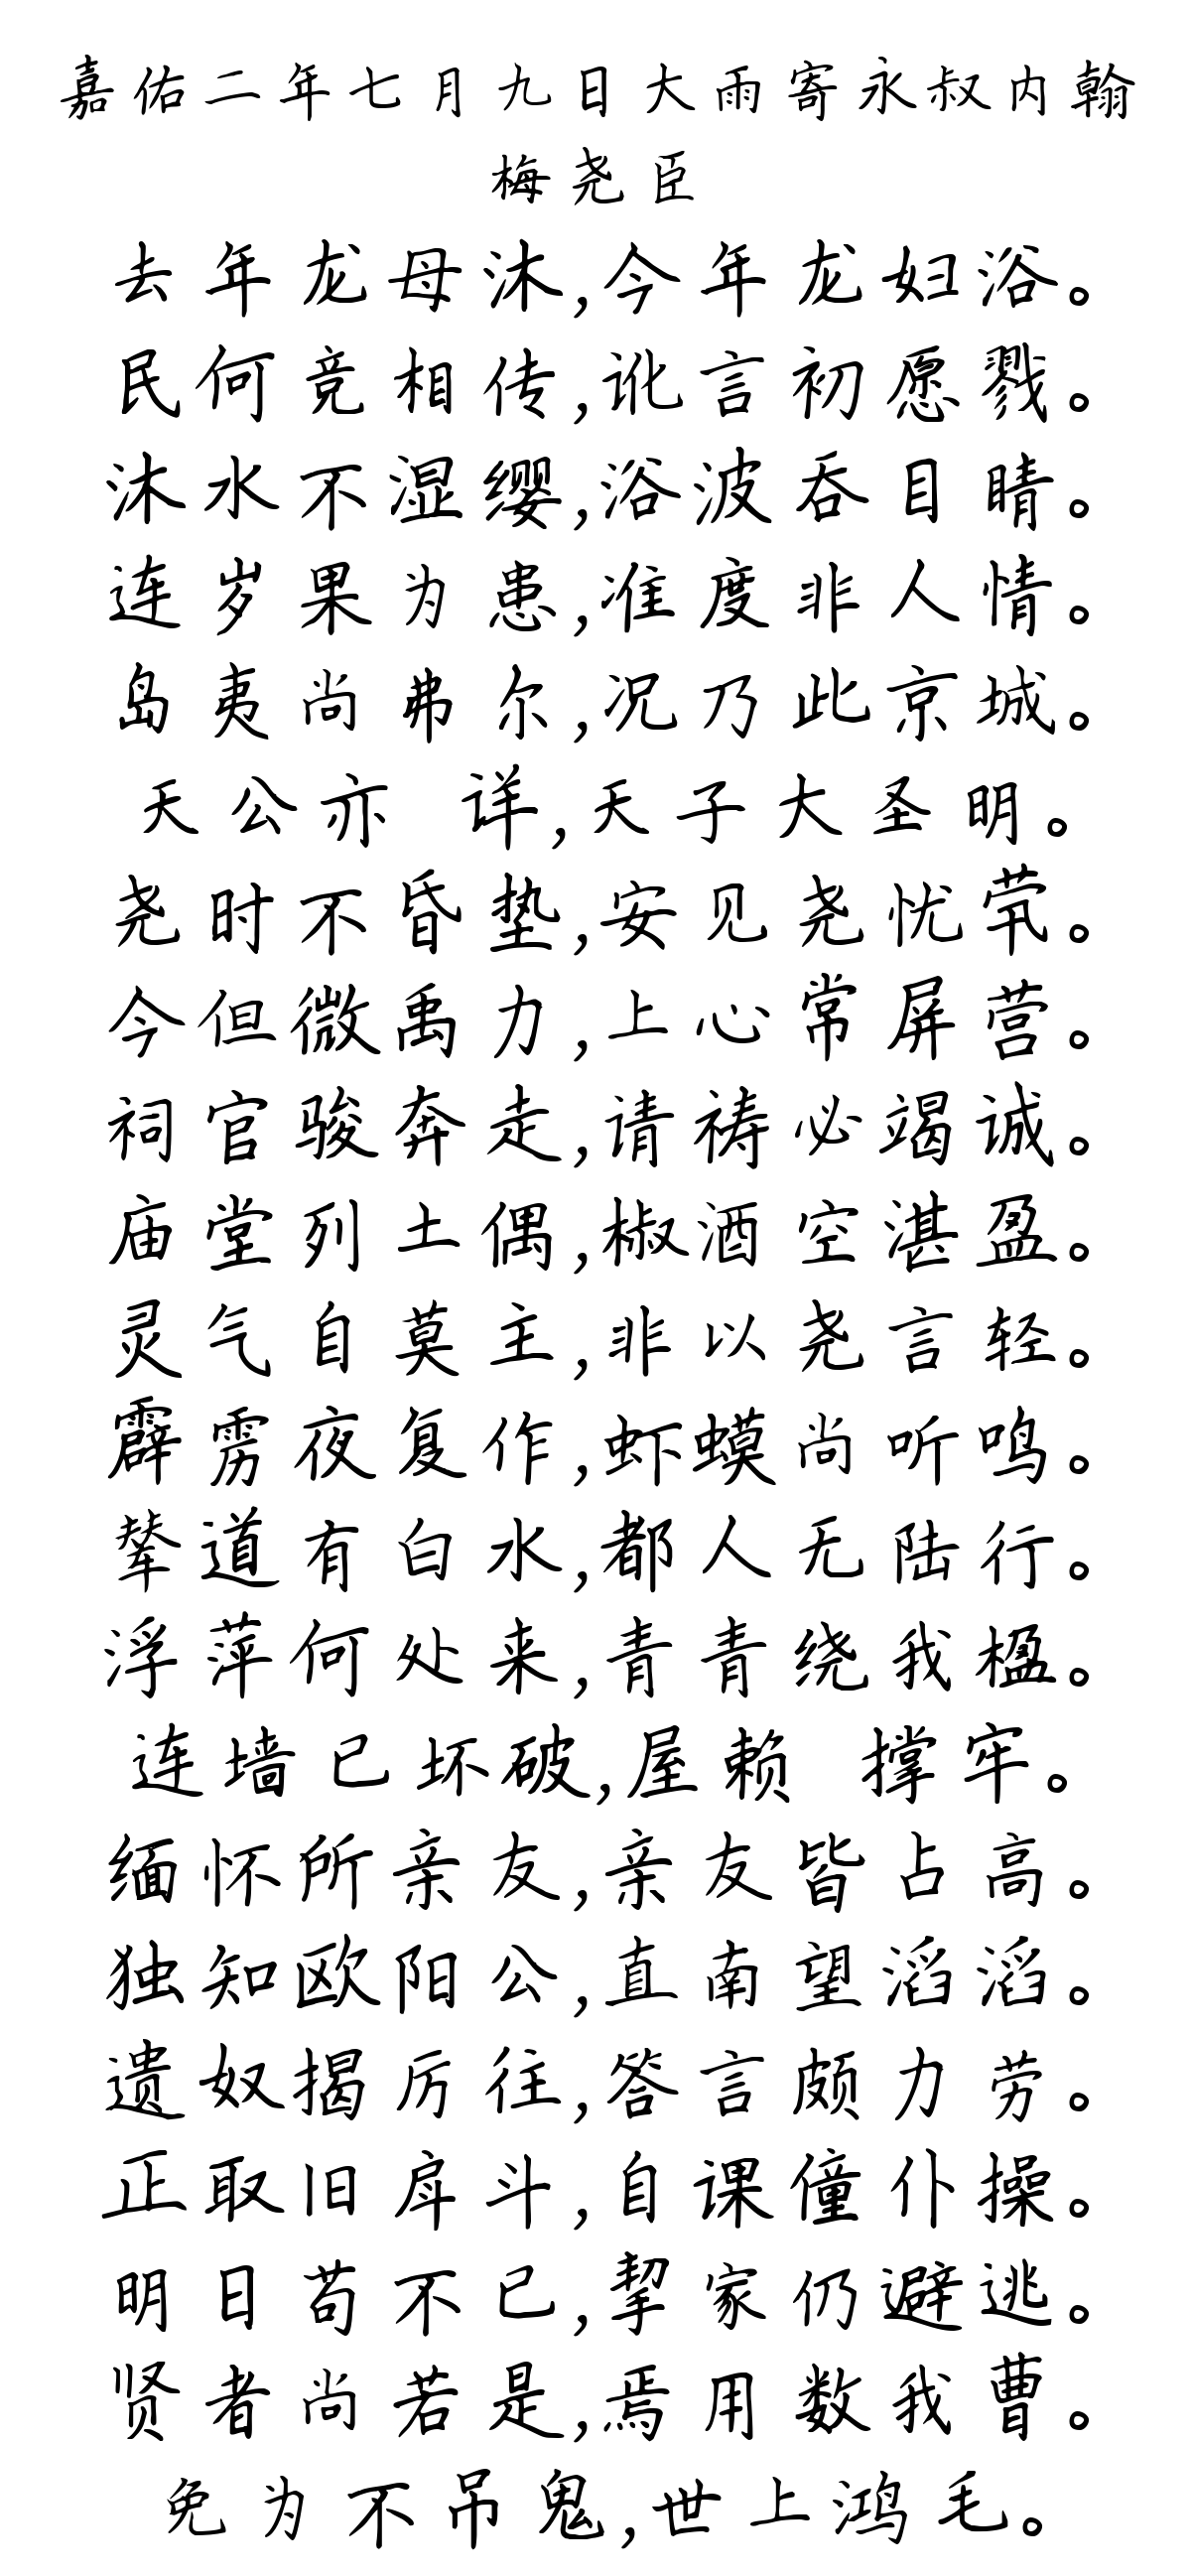 嘉佑二年七月九日大雨寄永叔内翰
梅尧臣
去年龙母沐,今年龙妇浴。
民何竞相传,讹言初愿戮。
沐水不湿缨,浴波吞目睛。
连岁果为患,准度非人情。
岛夷尚弗尔,况乃此京城。
天公亦 详,天子大圣明。
尧时不昏垫,安见尧忧茕。
今但微禹力,上心常屏营。
祠官骏奔走,请祷必竭诚。
庙堂列土偶,椒酒空湛盈。
灵气自莫主,非以尧言轻。
霹雳夜复作,虾蟆尚听鸣。
辇道有白水,都人无陆行。
浮萍何处来,青青绕我楹。
连墙已坏破,屋赖 撑牢。
缅怀所亲友,亲友皆占高。
独知欧阳公,直南望滔滔。
遗奴揭厉往,答言颇力劳。
正取旧戽斗,自课僮仆操。
明日苟不已,挈家仍避逃。
贤者尚若是,焉用数我曹。
免为不吊鬼,世上鸿毛。